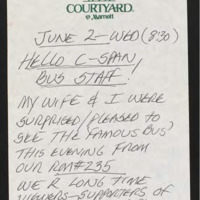 COURTYARD.
Marriott
JUNE 2-WED (8:30)
HELLO C-SPAN
BUS STAFF!
MY WIFE & I WERE
SURPRISED/PLEASED TO
SEE THE FAMOUS BUS,
THIS EVENING FROM
OUR RM#235
WE R LONG TIME
VIEWERS-SUPPORTERS OF